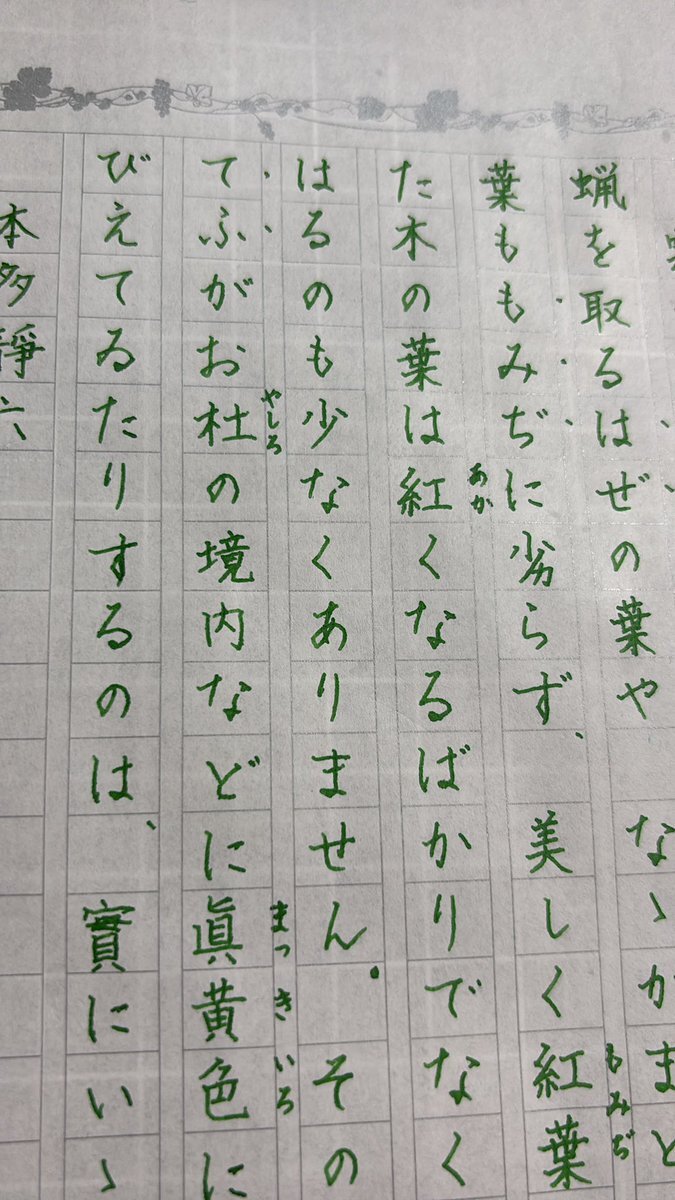 蝋を取るはぜの葉や　なゝかまど
葉ももみぢに劣らず、美しく紅葉
もみぢ
た木の葉は紅くなるばかりでなく
あか
はるのも少なくありません。その
てふがお杜の境内などに眞黄色に
やしろ
まっきいろ
びえてゐたりするのは、實にいゝ
本多靜六